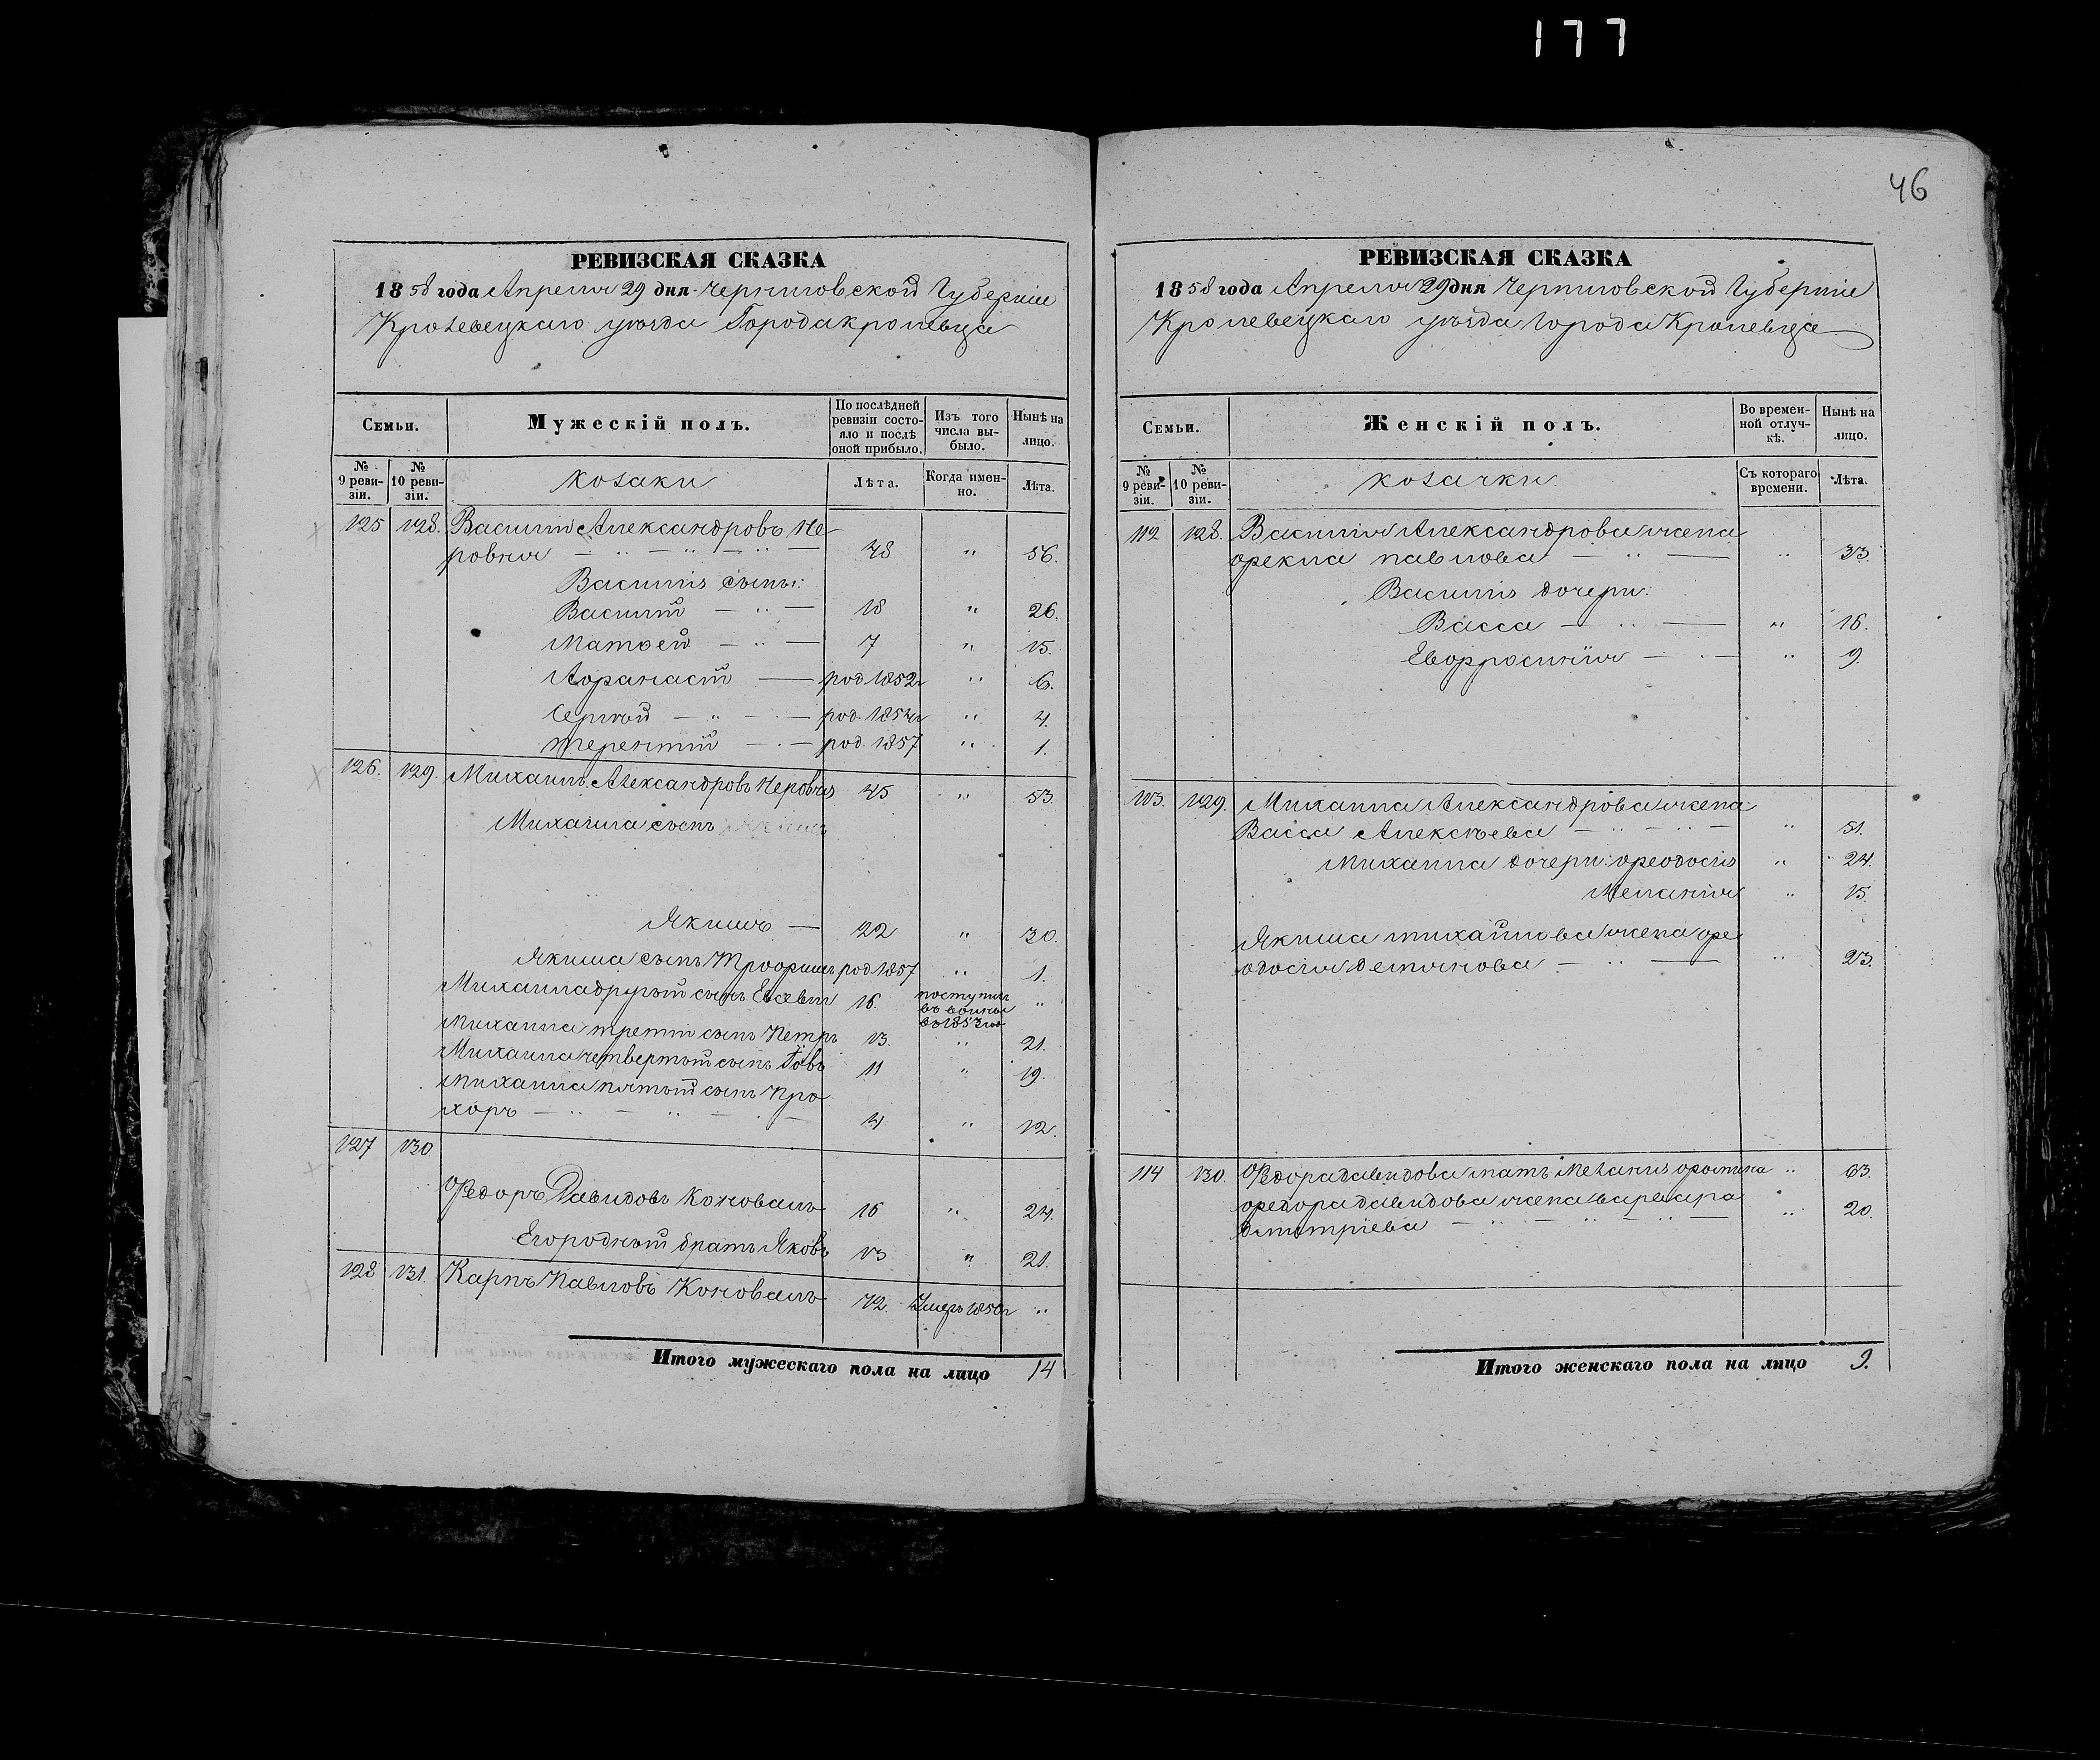 177
46
РЕВИЗСКАЯ СКАЗКА
1858 года Апреля 29 дня Черниговской Губерніи
Кролевецкаго уѣзда Города кролевца
Семьи.
Мужескій полъ.
По послѣдней ревизіи состояло и послѣ оной прибыло.
Изъ того числа выбыло.
Нынѣ на лицо.
№ 9 ревизіи.
№ 10 ревизіи.
козаки
Лѣта.
Когда именно.
Лѣта.
125 128. Василий Александровъ Не-
ровня — " — " — " — 48 " 56.
Василія сыны:
Василий — " — 18 " 26.
Матвей — " — 7 " 15.
Афанасий — род. 1852г " 6.
Сергѣй — " — род. 1854г " 4.
терентий — " — род. 1857 " 1.
126. 129. Михаилъ Александровъ Неровня 45 " 53.
Михаила сынъ
Якимъ — 22 " 30.
Якима сынъ Трофимъ род 1857 " 1.
Михаила другий сынъ Евсевий 16. поступил "
въ
Михаила третий сынъ Петръ 13. " 21.
Михаила четвертый сынъ Іовъ 11 " 19.
Михаила пятый сынъ Про-
хоръ — " — " — 4 " 12.
127 130
Федоръ Давидовъ Коновалъ 16 " 24.
Его родный братъ Яковъ 13 " 21.
128 131. Карпъ Павловъ Коновалъ 72. Умеръ 1850г "
Итого мужескаго пола на лицо 14
РЕВИЗСКАЯ СКАЗКА
1858 года Апреля 29 дня Черниговской Губерніи
Кролевецкаго уѣзда Города Кролевца
Семьи.
Женскій полъ.
Во временной отлучкѣ.
Нынѣ на лицо.
№ 9 ревизіи.
№ 10 ревизіи.
козачки.
Съ котораго времени.
Лѣта.
112 128. Василия Александрова жена
фекла павлова — " — " 33.
Василія дочери:
Васса — " — " 16.
Евфросинія — " — " 9.
113. 129. Михаила Александрова жена
Васса Алексѣева — " — " — " 51.
Михаила дочери: феодосія " 24.
Меланія " 15.
Якима михайлова жена фе-
одосия демянова — " — " 23.
114 130. Федора давидова мать Меланія фомина " 63.
федора давидова жена варвара
дмитріева — " — " — " — " 20.
Итого женскаго пола на лицо 9.